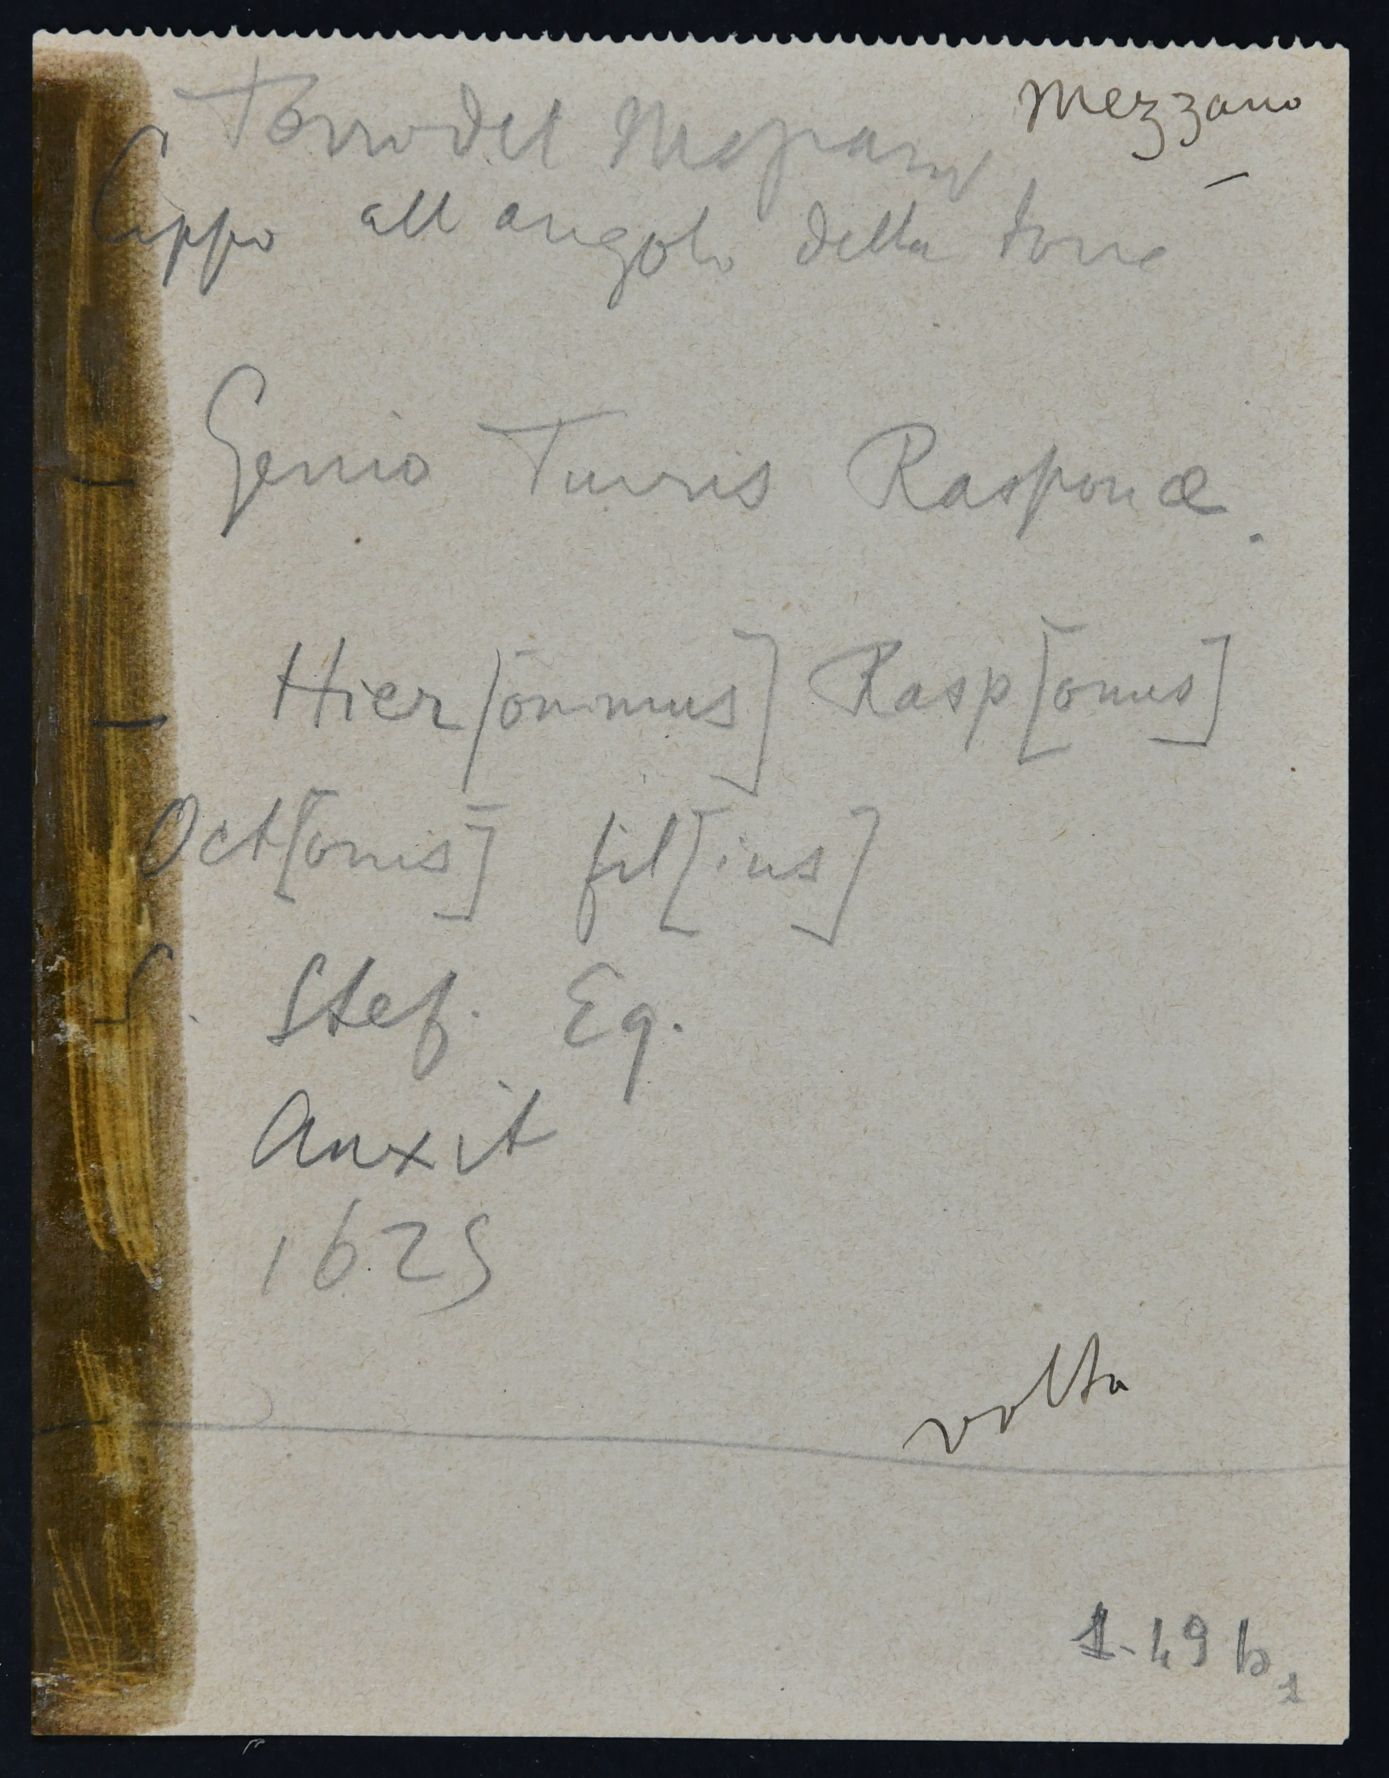 Mezzano
Torre del
Cippo all angolo della torre
Genio Turris Rasponæ.
Hier[onimus] Rasp[onus]
Oct[onis] fil[ius]
S. Stef. Eq.
Auxit
1625
volta
1-49 b 1